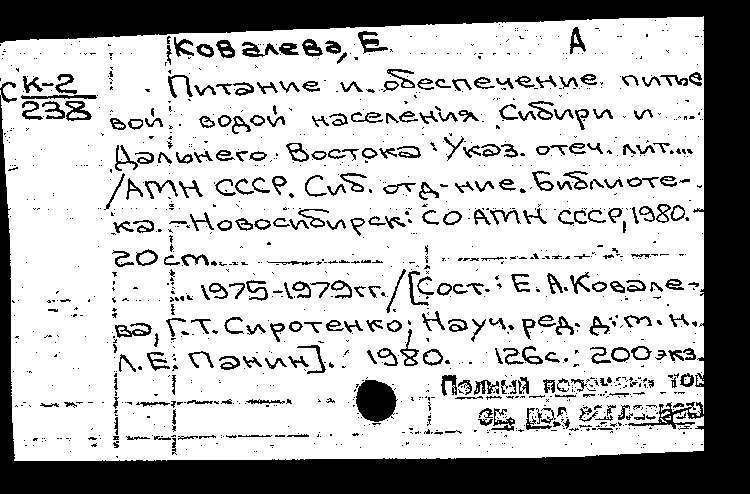 Ковалева, Е А
С К-2
238
Питание и обеспечение питье
вой водой населения Сибири и
Дальнего Востока: Указ. отеч. лит...
/АМН СССР. Сиб. отд-ние. Библиоте-
ка. - Новосибирск: СО АМН СССР, 1980. -
20 ст..
... 1975-1979гг. / [Сост.: Е. А. Ковале-
ва, Г.Т. Сиротенко; Науч. ред. д. м. н.
Л. Е. Панин]. 1980. 126с.; 200экз.
Полный перечень том
см. под заглавием